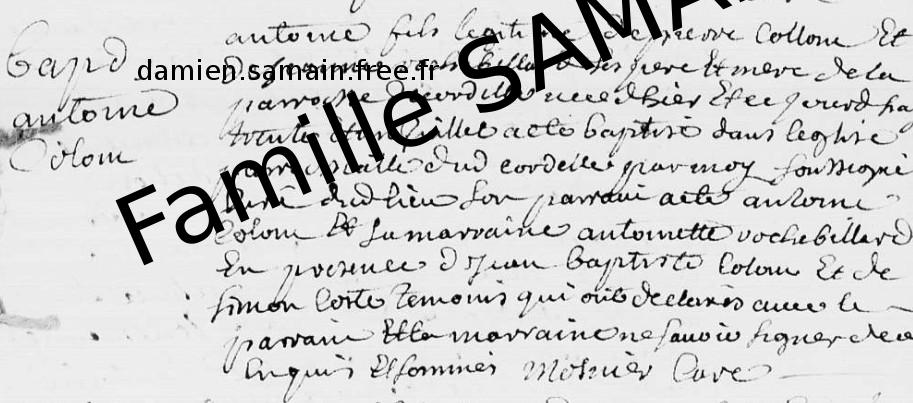 bapd
antoine
Colom
antoine fils legitime de pierre Collom Et
de jeanne rochebillard ses pere Et mere de la
parroisse de cordelle nee d'hier Et ce jourd'huy
trente Et un juillet a ete baptisé dans leglise
parroissialle dud cordelle par moy soussigné
curé dud lieu son parrain a ete antoine
Colom Et sa marraine antoinette rochebillard
En presence de jean baptiste Colom Et de
simon Coste temoins qui ont declarés avec le
parrain Et la marraine ne savoir signer de ce
Enquis Et sommés Mosnier Cure
damien.samrain.free.fr
Famille SAMRA